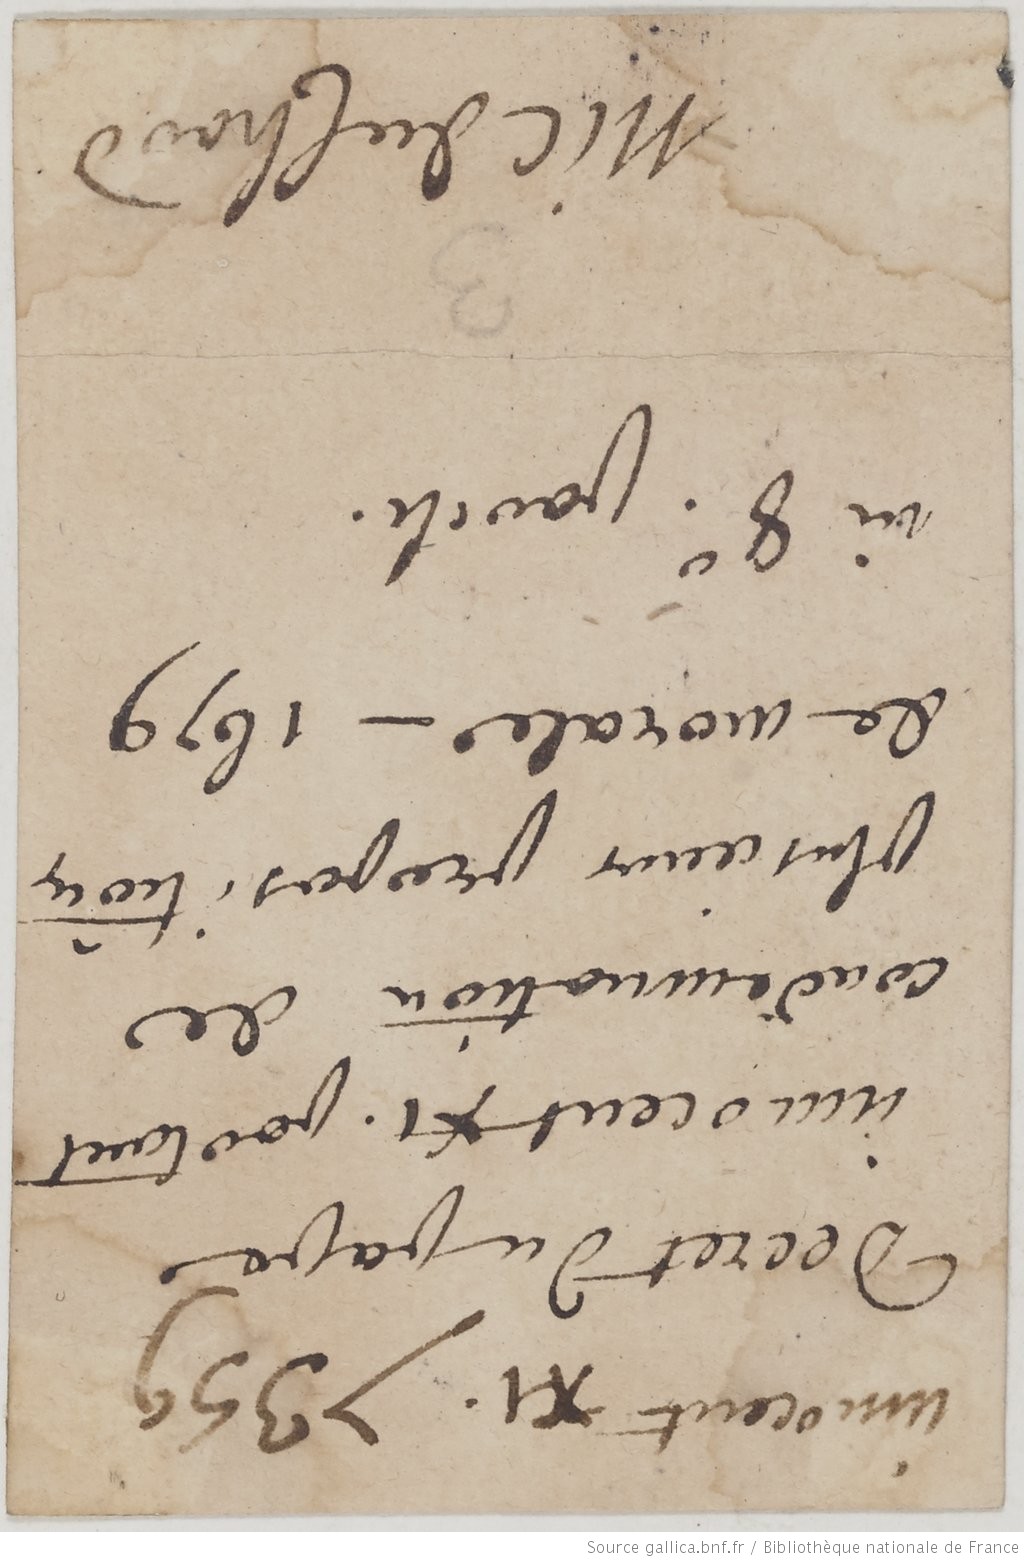 innocent XI. 7359
Decret du pape
innocent XI. portant
condemnation de
plusieurs propositions
de morale - 1679
in 8° parch.
3
Source gallica.bnf.fr / Bibliothèque nationale de France